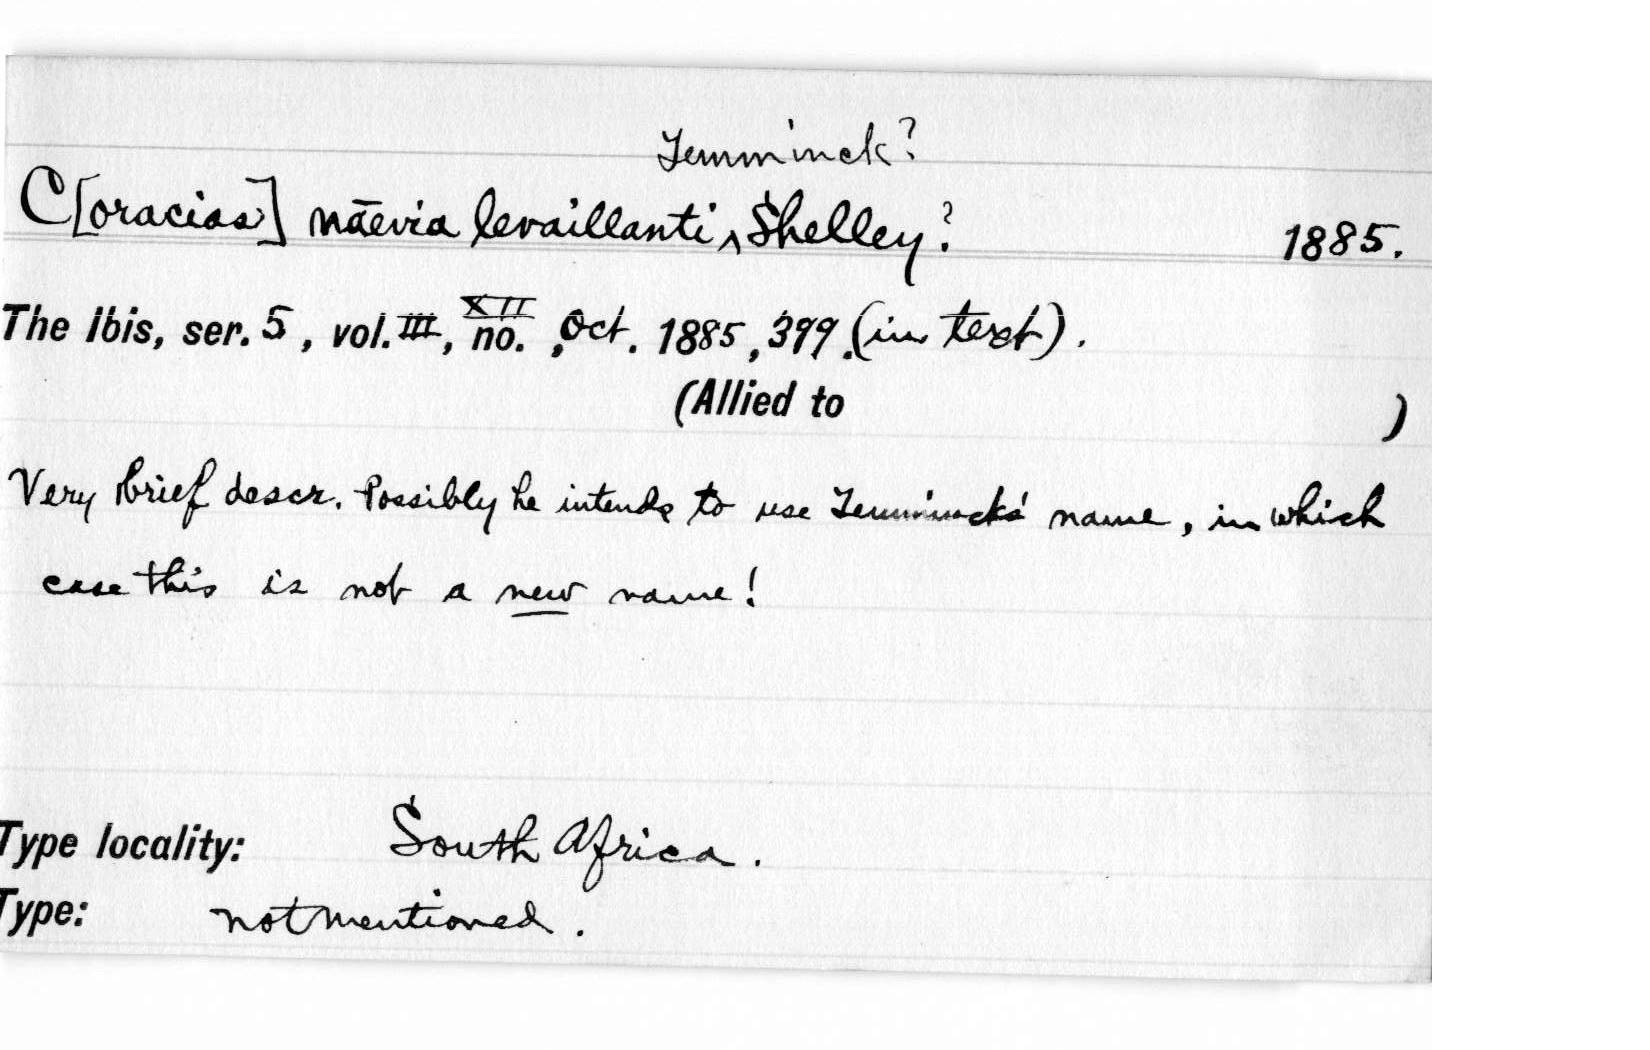 Temminck?
C[oracias] nāevia levaillanti ‸ Shelley? 1885.
The Ibis, ser. 5, vol. III, XII no. , Oct. 1885, 399. (in text).
(Allied to )
Very brief descr. Possibly he intends to use Temminck's name, in which
case this is not a new name!
Type locality: South Africa.
Type: not mentioned.